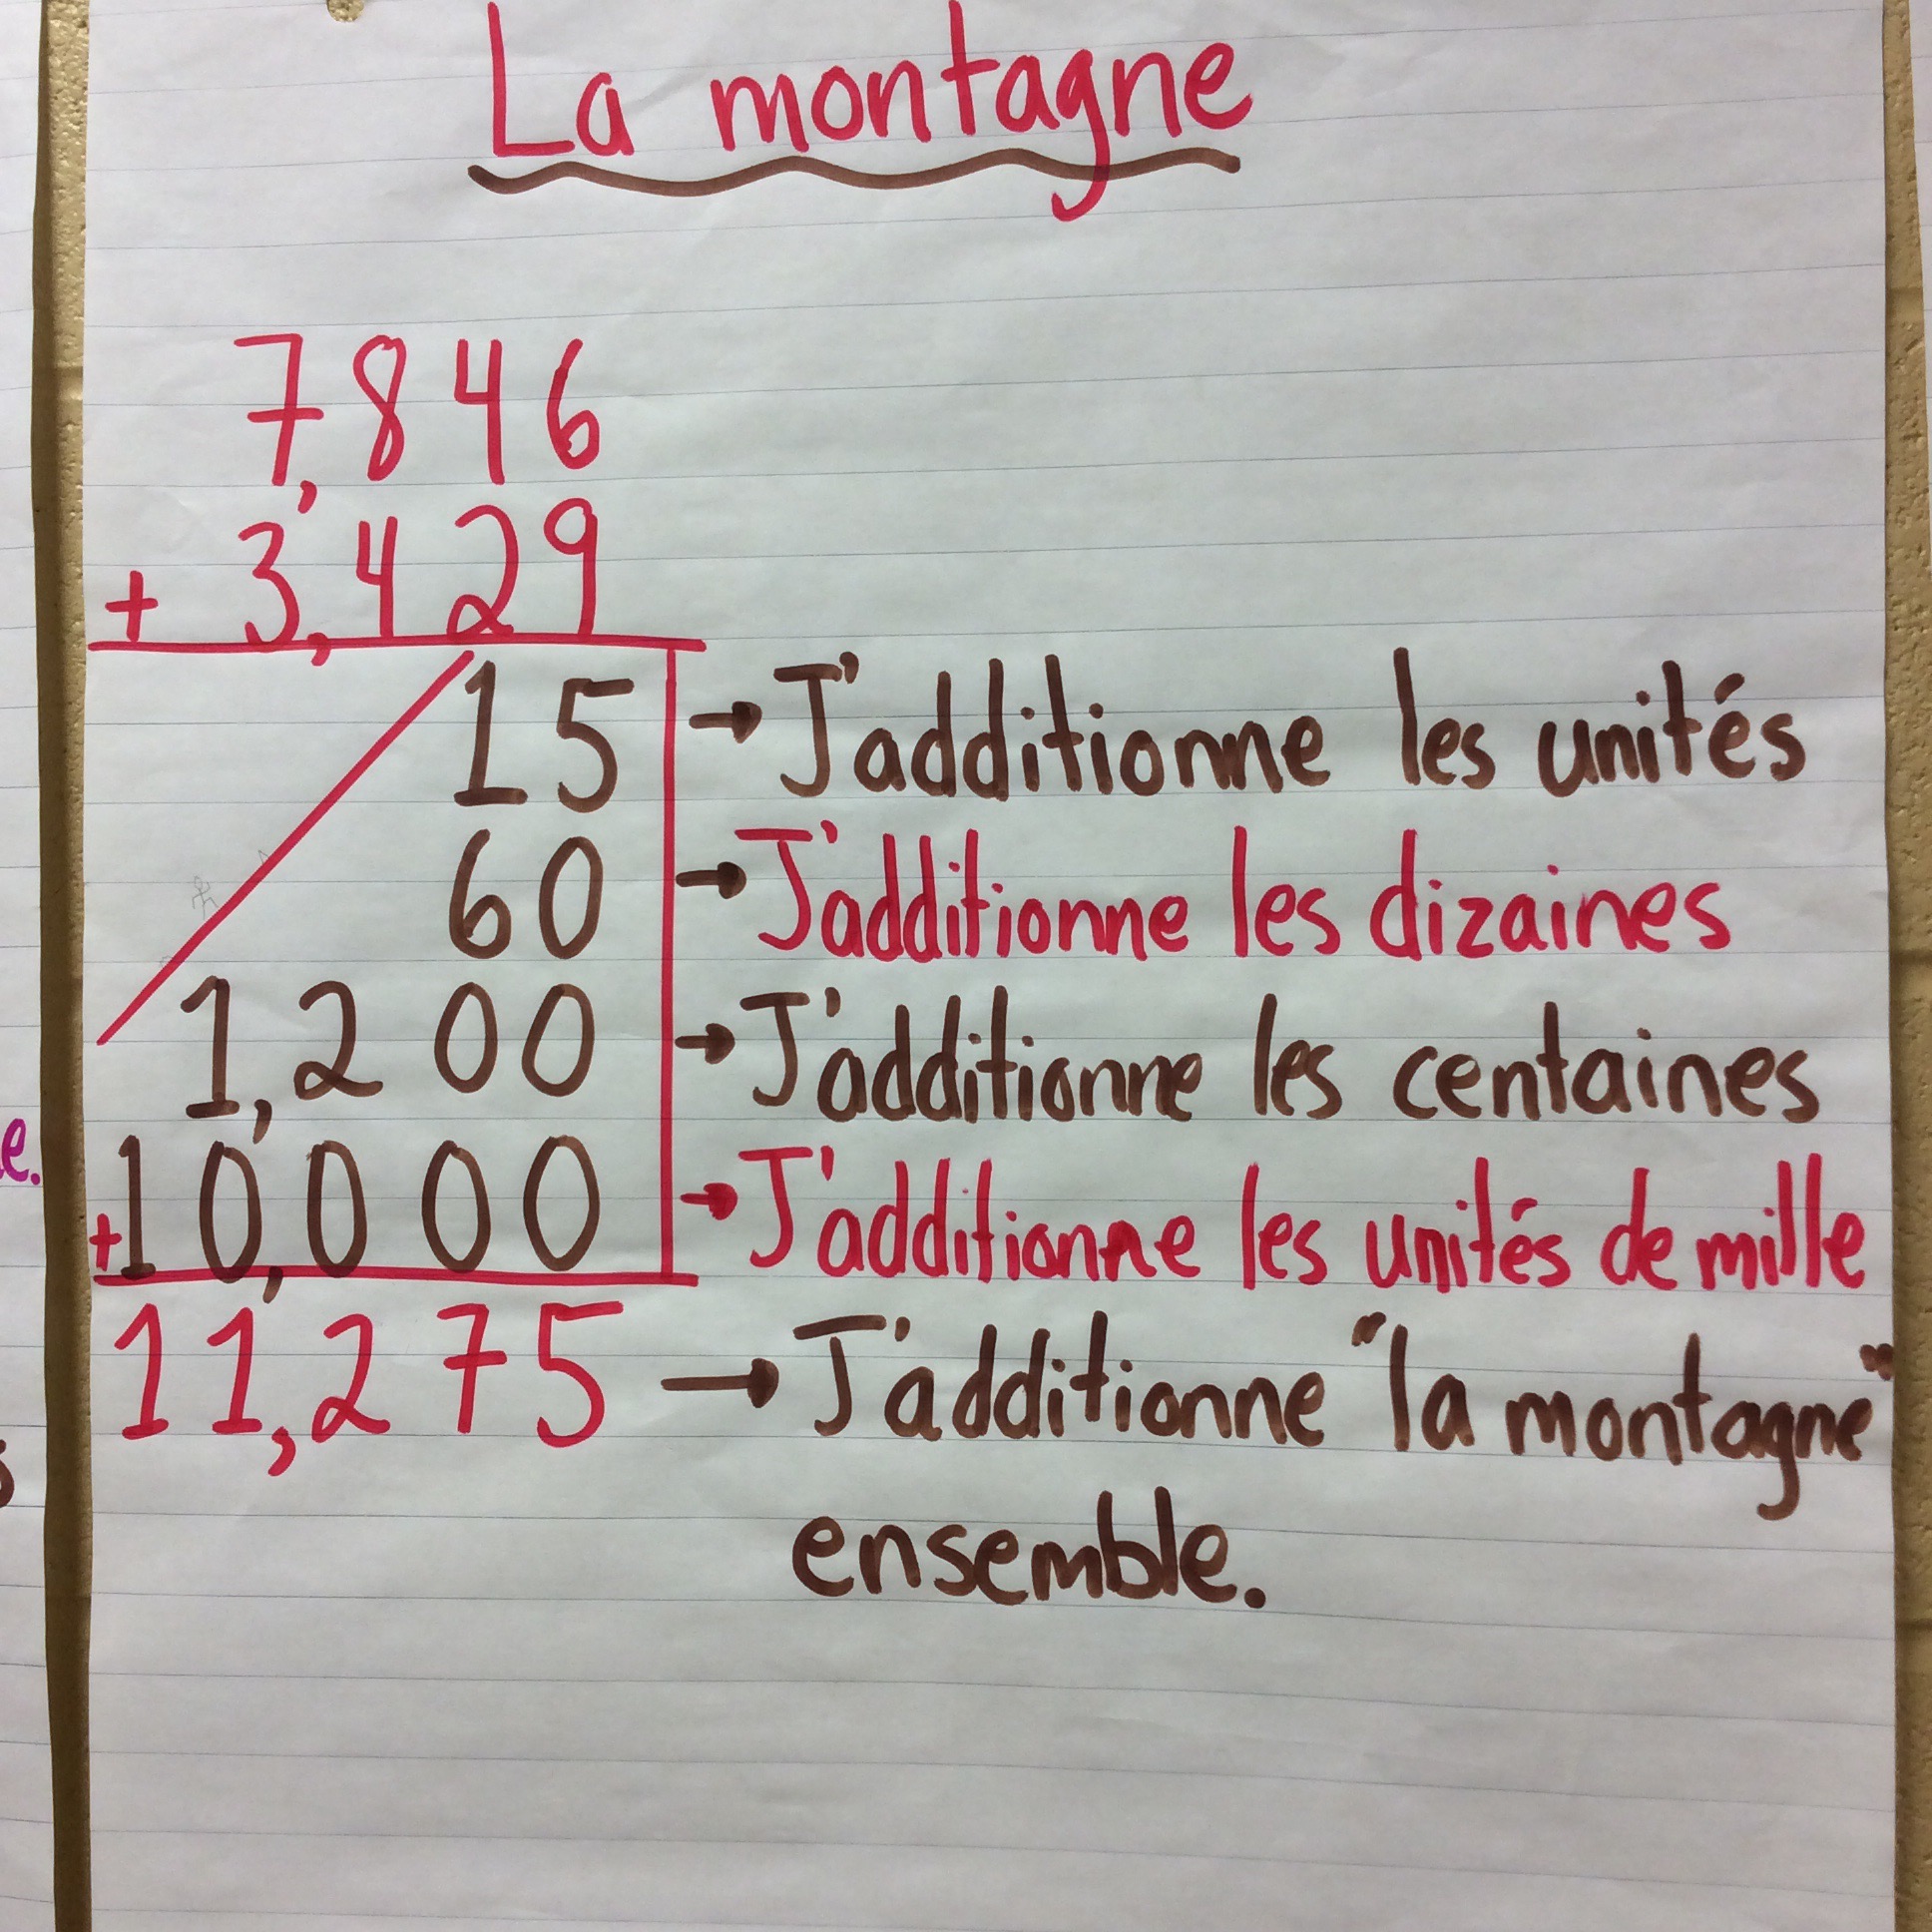 La montagne
7,846
+ 3,429
15 → J'additionne les unités
60 → J'additionne les dizaines
1,200 → J'additionne les centaines
+10,000 → J'additionne les unités de mille
11,275 → J'additionne "la montagne"
ensemble.
e.
s